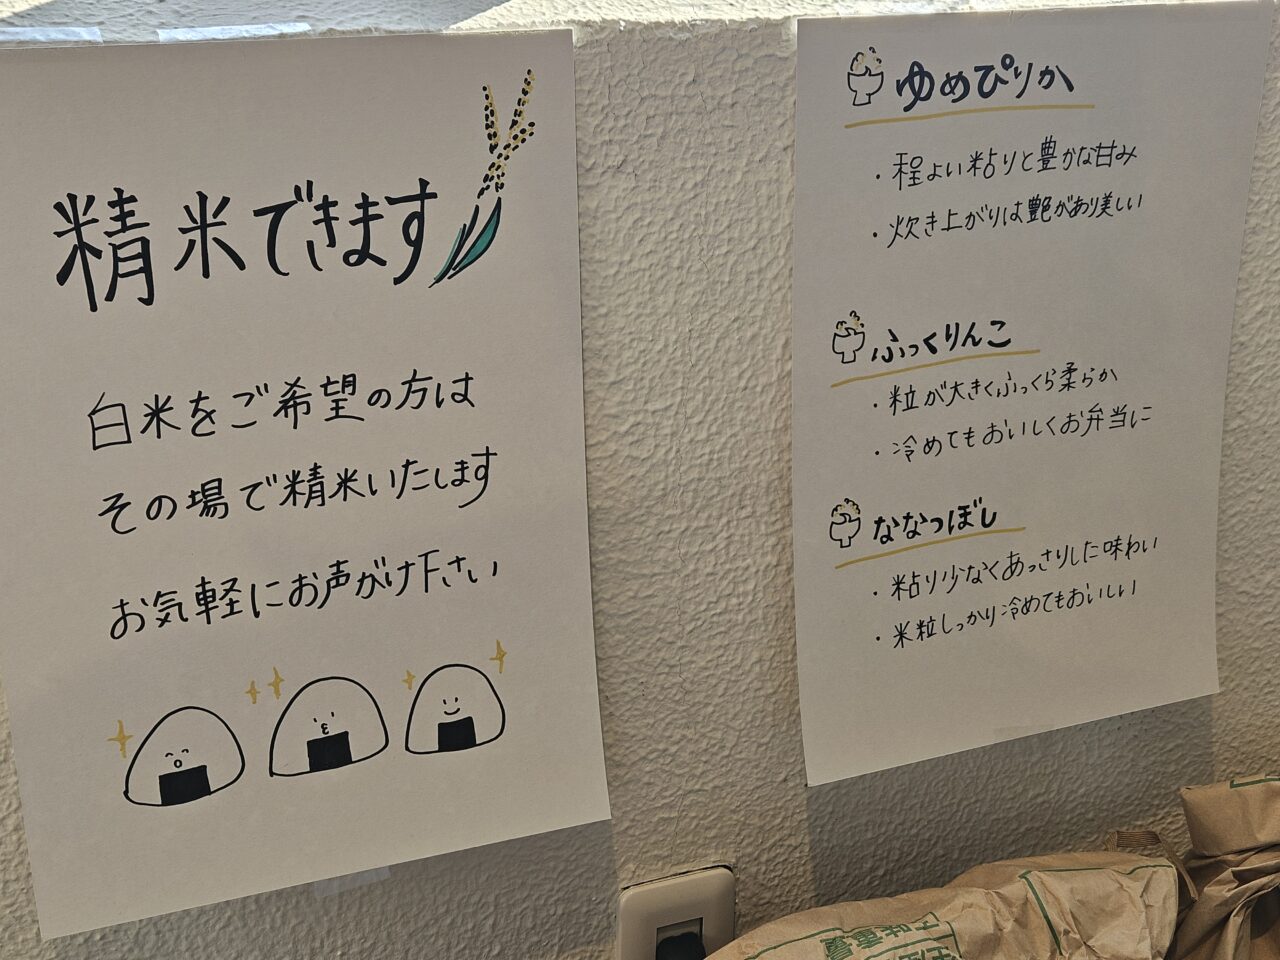 精米できます
白米をご希望の方は
その場で精米いたします
お気軽にお声がけ下さい
ゆめぴりか
・程よい粘りと豊かな甘み
・炊き上がりは艶があり美しい
ふっくりんこ
・粒が大きくふっくら柔らか
・冷めてもおいしくお弁当に
ななつぼし
・粘り少なくあっさりした味わい
・米粒しっかり冷めてもおいしい